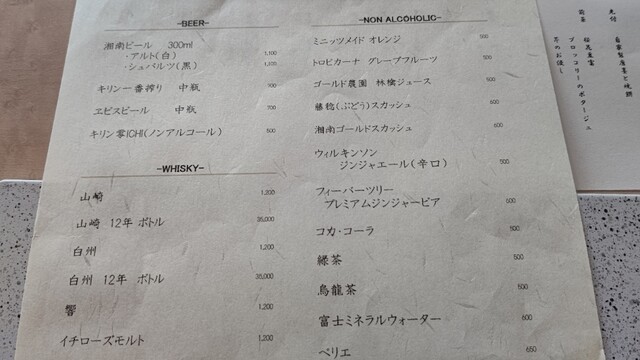 -BEER-
湘南ビール 300ml
・アルト(白) 1,100
・シュバルツ(黒) 1,100
キリン一番搾り 中瓶 700
ヱビスビール 中瓶 700
キリン零ICHI(ノンアルコール) 600
-WHISKY-
山崎 1,200
山崎 12年 ボトル 35,000
白州 1,200
白州 12年 ボトル 35,000
響 1,200
イチローズモルト 1,200
-NON ALCOHOLIC-
ミニッツメイド オレンジ 500
トロピカーナ グレープフルーツ 500
ゴールド農園 林檎ジュース 600
藤稔(ぶどう)スカッシュ 600
湘南ゴールドスカッシュ 600
ウィルキンソン
ジンジャエール(辛口) 500
フィーバーツリー
プレミアムジンジャービア 600
コカ・コーラ 500
緑茶 500
烏龍茶 500
富士ミネラルウォーター 600
ペリエ 650
先付
前菜
ブロッコリーのポタージュ
芹のお浸し